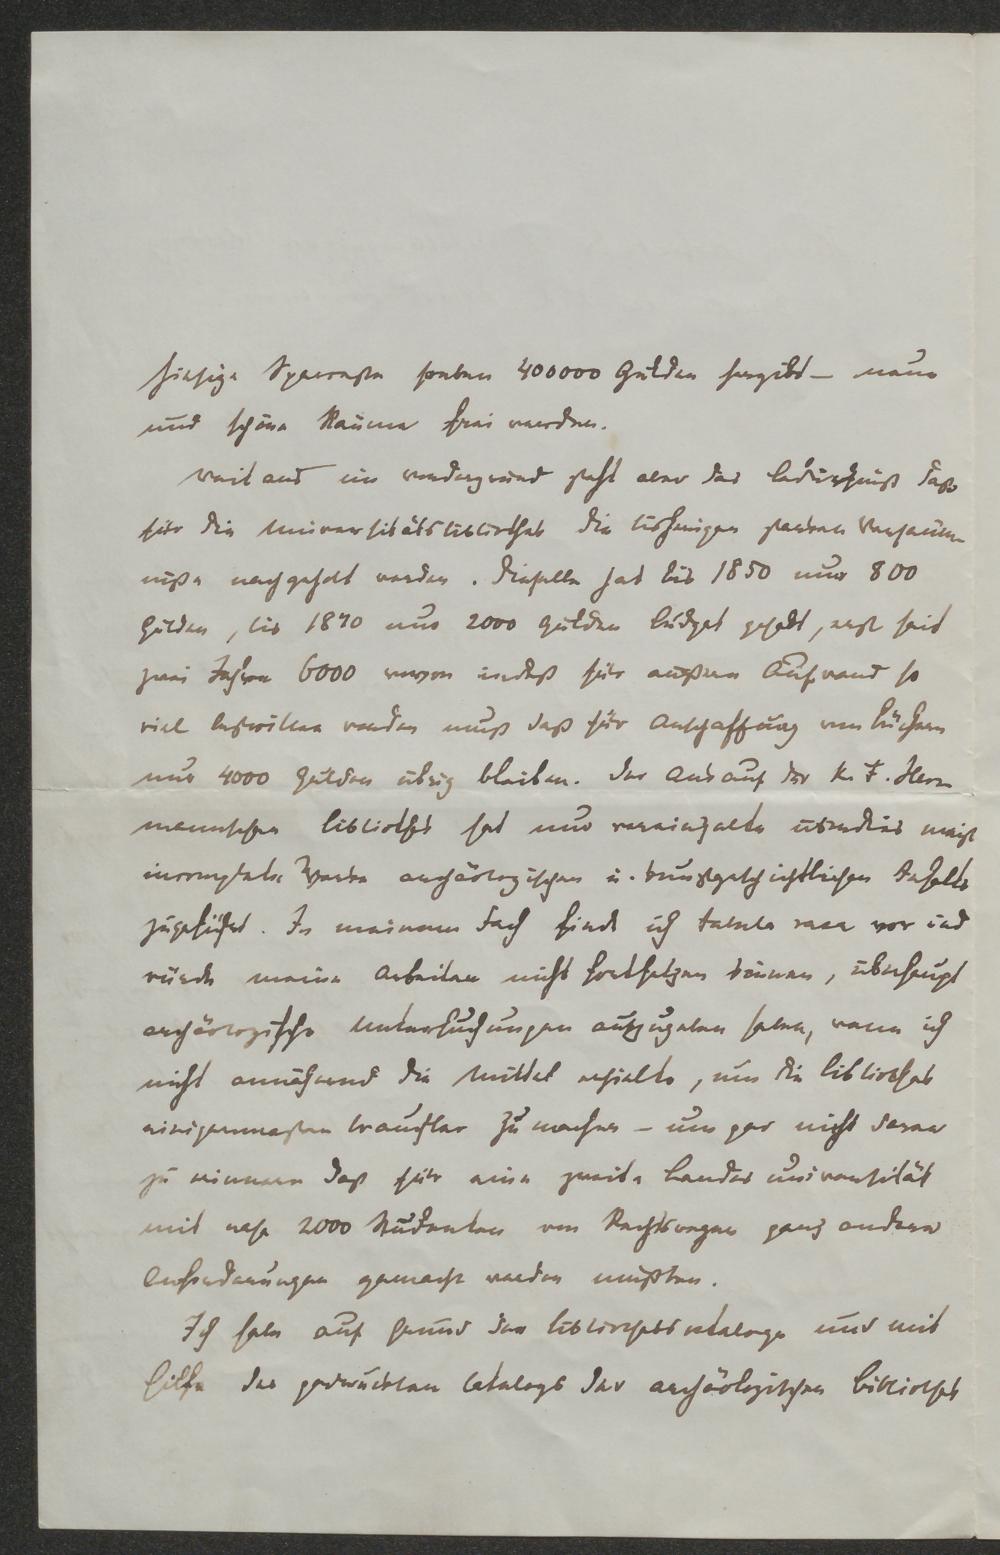 hiesige Sparcasse soeben 400000 Gulden hergibt — neue
und schöne Räume frei werden.
Weitaus im Vordergrund steht aber das Bedürfniß daß
für die Universitätsbibliothek die bisherigen starken Versäum-
niße nachgeholt werden. Dieselbe hat bis 1850 nur 800
Gulden, bis 1870 nur 2000 Gulden Budget gehabt, erst seit
zwei Jahren 6000 wovon indeß für äußeren Aufwand so
viel bestritten werden muß daß für Anschaffung von Büchern
nur 4000 Gulden übrig bleiben. Der Ankauf der K. F. Her-
mannschen Bibliothek hat nur vereinzelte überdies meist
incomplete Werke archäologischen u. kunstgeschichtlichen Inhalts
zugeführt. In meinem Fach finde ich tabula rasa vor und
würde meine Arbeiten nicht fortsetzen können, überhaupt
archäologische Untersuchungen aufzugeben haben, wenn ich
nicht annähernd die Mittel erhielte, um die Bibliothek
einigermaßen brauchbar zu machen — um gar nicht daran
zu erinnern daß für eine zweite Landesuniversität
mit nahe 2000 Studenten von Rechtswegen ganz andere
Anforderungen gemacht werden müßten.
Ich habe auf Grund der Bibliothekscataloge und mit
Hilfe des gedruckten Catalogs der archäologischen Bibliothek